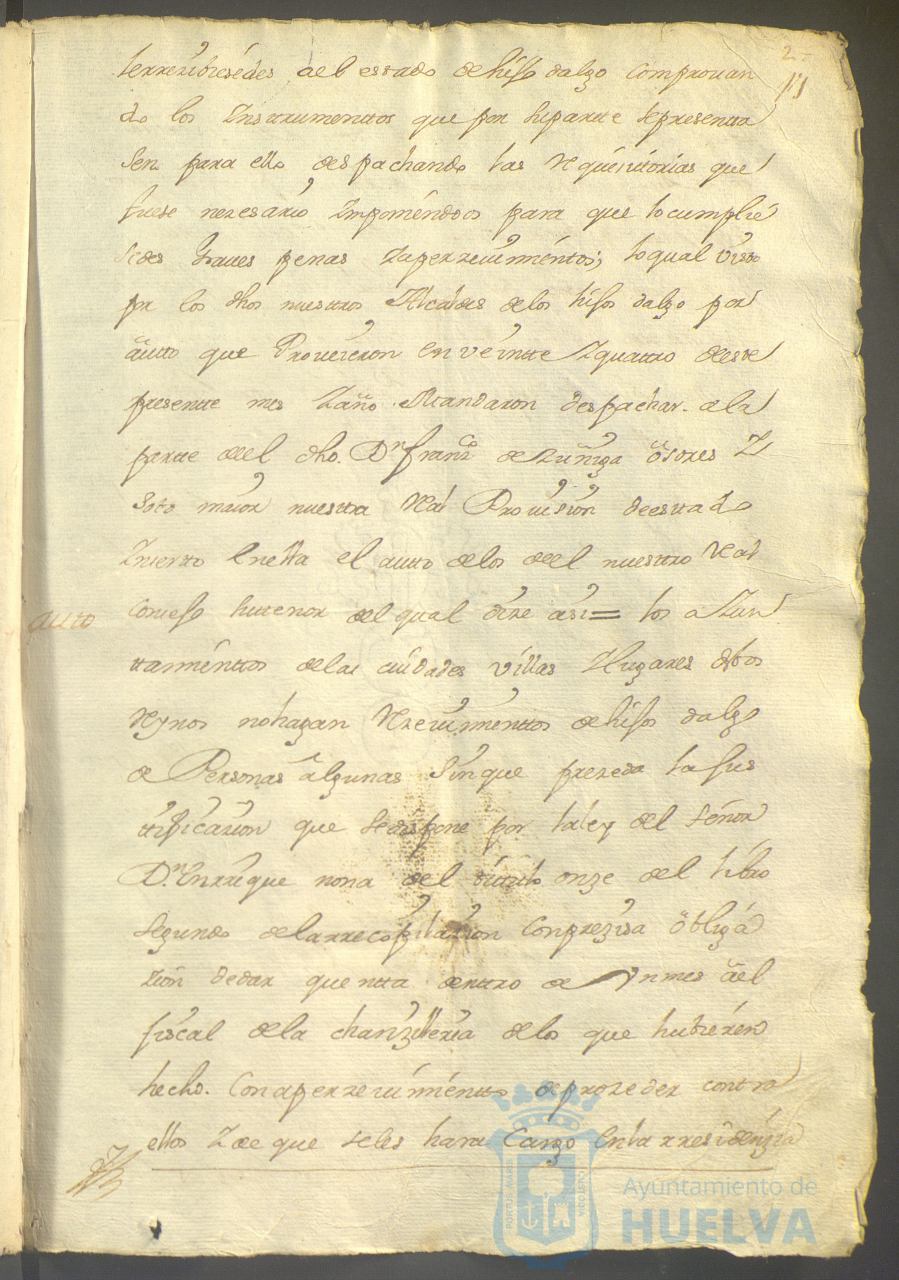 2
11
terrezibiesedes ael estado de hijo dalgo comprouan
do los Instrumenttos que por su partte sepresenta
sen para ello despachando las Requisitorias que
fuese nezesario Imponiendoos para que locumplie
sedes graues penas Zaperzeuimientos; loqual visto
por los dhos nuestros Alcaldes delos hijos dalgo por
autto que Proueieron en veintte Zquattro deeste
presentte mes Zaño Mandaron despachar ala
partte deel dho. Dn. franco de Zuñiga Osores Z
Soto maior nuestra Real Prouision deesttado
Inserto Enella el autto delos deel nuestro Real
auto
Consejo hutenor del qual dize asi= los aZun
tamienttos delas ciudades Villas Zlugares destos
Reynos nohagan Rezeuimienttos de hijos dalgo
de Personas algunas Sinque prezeda la Jus
ttificazion que sedispone por laley del Señor
Dn. Enrrique nona del titulo onze del libro
Segundo delarrecopilazion Conprezisa obliga
zion dedar quentta dentro de Vnmes ael
fiscal dela chanzilleria delos que hubieren
hecho. Conaperzeuimientto deprozeder contra
ellos Zde que seles hara Cargo Enlarresidenzia
PORTUS MARIS
ET TERRÆ CUSTODIA
Ayuntamiento de
HUELVA